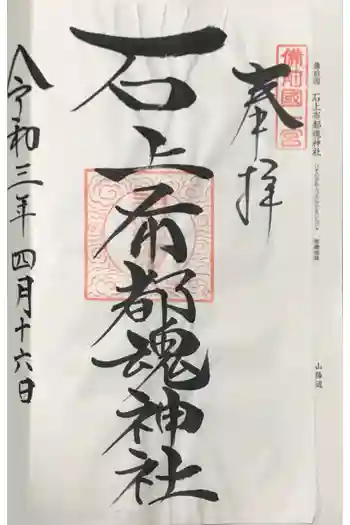 備前國 石上布都魂神社
山陽道
備前國一宮
奉拝
石上布都魂神社
令和三年四月十六日